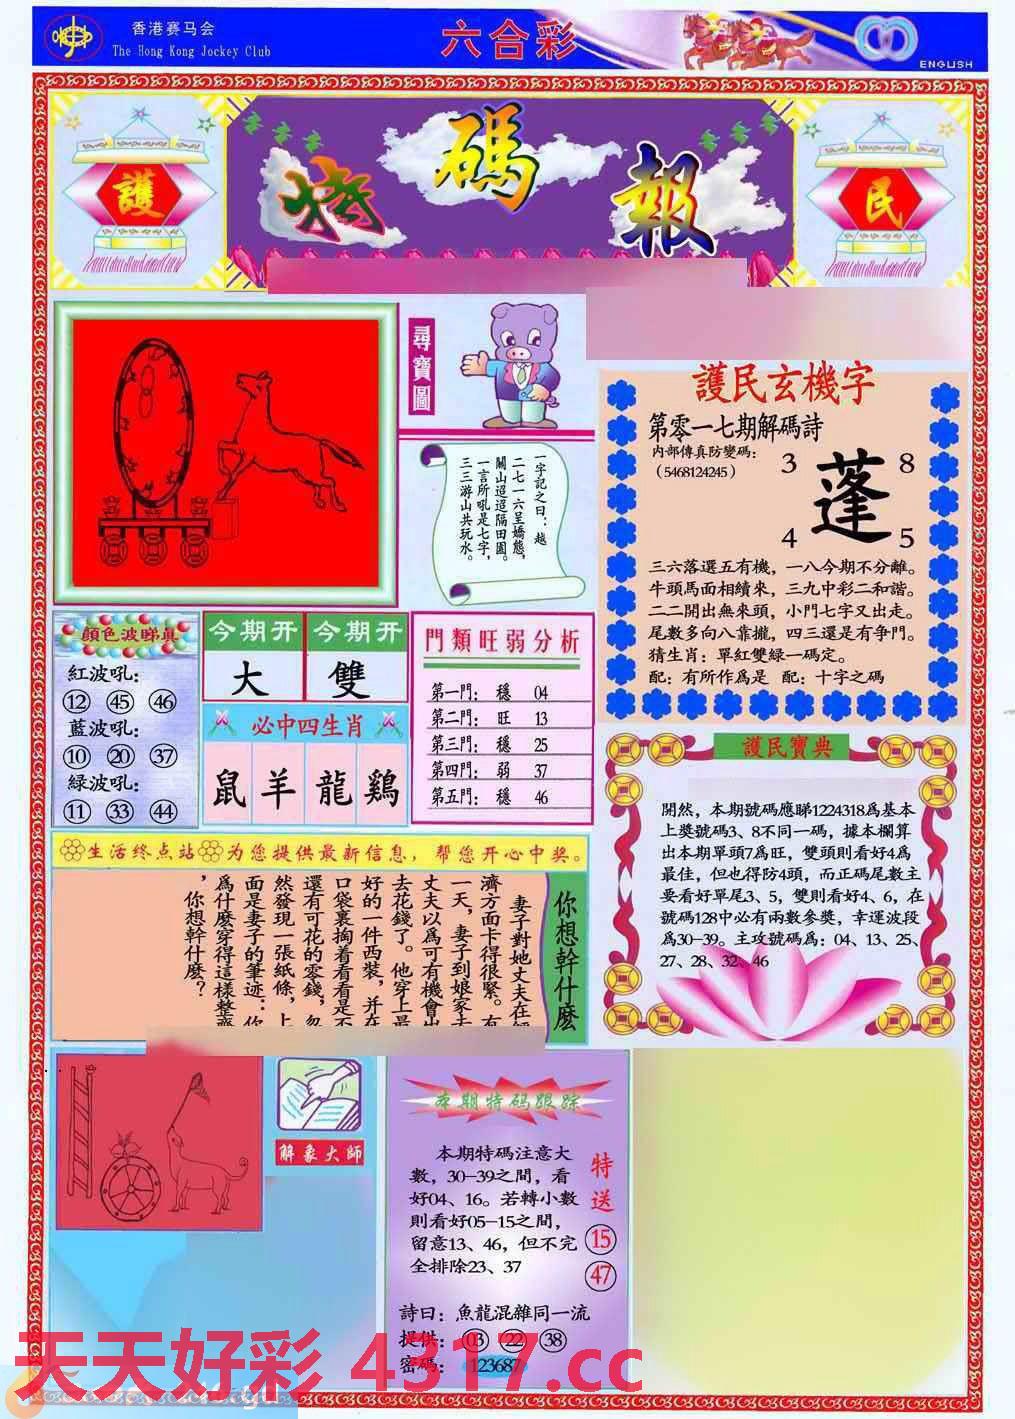 香港赛马会
The Hong Kong Jockey Club
六合彩
ENGLISH
護
特碼報
民
尋寶圖
一字記之曰：越
二七一六呈嬌態，
關山迢迢隔田園。
一言所吼是七字，
三三游山共玩水。
護民玄機字
第零一七期解碼詩
內部傳真防變碼：
（5468124245）
3
8
蓬
4
5
三六落選五有機，一八今期不分離。
牛頭馬面相續來，三九中彩二和諧。
二二開出無來頭，小門七字又出走。
尾數多向八靠攏，四三還是有爭門。
猜生肖：單紅雙綠一碼定。
配：有所作爲是 配：十字之碼
顏色波睇真
紅波吼：
12 45 46
藍波吼：
10 20 37
綠波吼：
11 33 44
今期开 今期开
大 雙
必中四生肖
鼠 羊 龍 鷄
門類旺弱分析
第一門： 穩 04
第二門： 旺 13
第三門： 穩 25
第四門： 弱 37
第五門： 穩 46
護民寶典
開然，本期號碼應睇1224318爲基本
上獎號碼3、8不同一碼，據本欄算
出本期單頭7爲旺，雙頭則看好4爲
最佳，但也得防4頭，而正碼尾數主
要看好單尾3、5，雙則看好4、6，在
號碼128中必有兩數參獎，幸運波段
爲30-39。主攻號碼爲：04、13、25、
27、28、32、46
生活终点站 为您提供最新信息，帮您开心中奖。
你想幹什麽
妻子對她丈夫在
濟方面卡得很緊。有
一天，妻子到娘家去
丈夫以爲可有機會出
去花錢了。他穿上最
好的一件西裝，并在
口袋裏掏着看看是不
還有可花的零錢，忽
然發現一張紙條，上
面是妻子的筆迹：你
爲什麽穿得這樣整齊
，你想幹什麽？
解象大師
本期特码跟踪
本期特碼注意大
數，30-39之間，看
好04、16。若轉小數
則看好05-15之間，
留意13、46，但不完
全排除23、37
特送
15
47
詩曰：魚龍混雜同一流
提供：03 22 38
密碼：123687
天天好彩 4317.cc